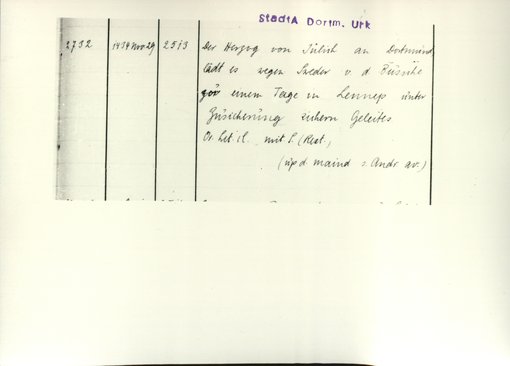 StadtA Dortm. Urk
2732 1434 Nov 29 2513 Der Herzog von Jülich an Dortmund
lädt es wegen Sweder v. d
zu einem Tage in Lennep unter
Zusicherung sichern Geleites.
Or. mit S. (Rest.)
(up d maind s. Andr. av.)